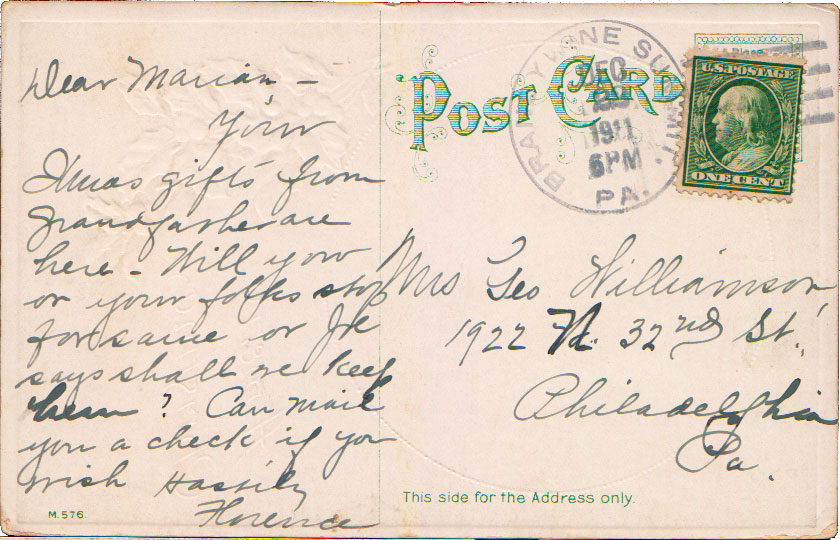 Dear Marian, -
Your
Xmas gifts from
Grandfather are
here - Will you
or your folks stop
for same or Joe
says shall we keep
them? Can mail
you a check if you
wish Hastily
Florence
M. 576.
POST CARD
BRANDYWINE SUMMIT.
DEC
1911
6PM
PA.
U.S. POSTAGE
ONE CENT
Mrs Geo Williamson,
1922 N. 32nd St.,
Philadelphia
Pa.
This side for the Address only.